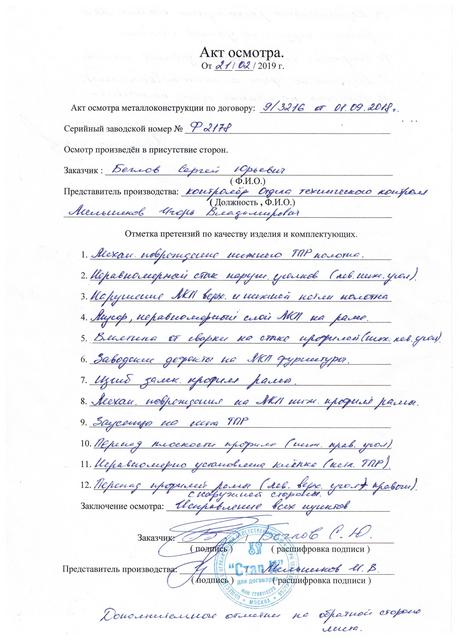 Акт осмотра.
От 21 / 02 / 2019 г.
Акт осмотра металлоконструкции по договору: 9/3216 от 01.09.2018г.
Серийный заводской номер № Ф 2178
Осмотр произведён в присутствие сторон.
Заказчик : Беглов Сергей Юрьевич
( Ф.И.О.)
Представитель производства: контролёр отдела технического контроля
( Должность , Ф.И.О.)
Мельников Игорь Владимирович
Отметка претензий по качеству изделия и комплектующих.
1. Механ. повреждение нижнего ТПР полотна.
2. Неравномерный стык наружн. уголков (лев. ниж. угол).
3. Нарушение ЛКП верх. и нижней полотна
4. Мусор, неравномерный слой ЛКП на раме.
5. Вмятина от сварки на стыке профилей (ниж. лев. угол)
6. Заводские дефекты на ЛКП фурнитура.
7. Изгиб замк. профиля рамы.
8. Механ. повреждения на ЛКП ниж. профиля рамы.
9. Заусенцы на ТПР
10. Перепад плоскости профиля (ниж. прав. угол).
11. Неравномерно установлена клёпка (ТПР).
12. Перепад профилей рамы (лев. верх. угол + правый).
с наружной стороны.
Заключение осмотра: Исправление всех пунктов
Заказчик: Беглов С. Ю.
( подпись ) ( расшифровка подписи )
Представитель производства: Мельников И. В.
( подпись ) ( расшифровка подписи )
"Стал
для договоров
МОСКВА
Дополнительные отметки на обратной стороне
листа.